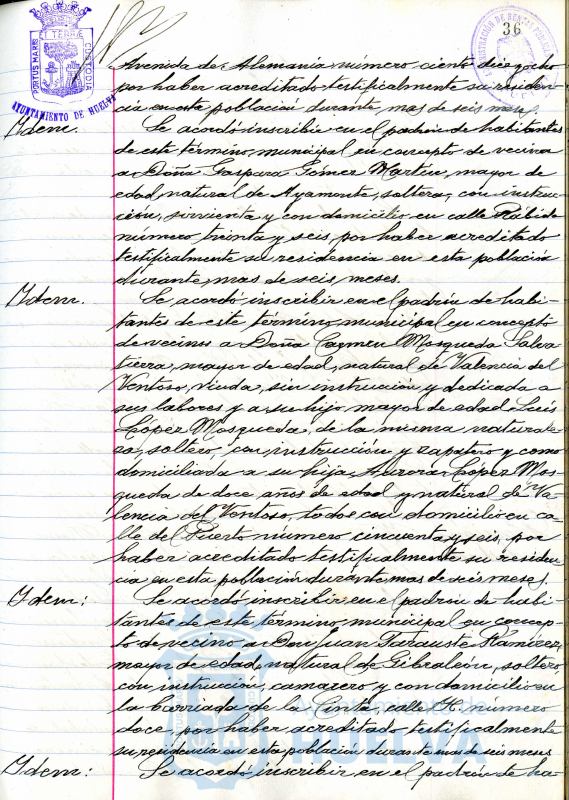 PORTUS MARIS ET TERRAE CUSTODIA
AYUNTAMIENTO DE HUELVA
36
Avenida de Alemania número ciento diez y ocho
por haber acreditado testifícalmente su residen-
cia en esta población durante, mas de seis meses.
Idem.
Se acordó inscribir en el padrón de habitantes
de este término municipal en concepto de vecina
a Doña Gaspara Gómez Martín, mayor de
edad, natural de Ayamonte, soltera, con instruc-
ción, sirvienta y con domicilio en calle Rábida
número treinta y seis, por haber acreditado
testifícalmente su residencia en esta población
durante, mas de seis meses.
Idem.
Se acordó inscribir en el padrón de habi-
tantes de este término municipal en concepto
de vecinos a Doña Carmen Mosqueda Salva-
tierra, mayor de edad, natural de Valencia del
Ventoso, viuda, sin instrucción y dedicada a
sus labores y a su hijo, mayor de edad, Luís
López Mosqueda, de la misma naturale-
za, soltero, con instrucción y zapatero y como
domiciliada a su hija, Aurora López Mos-
queda de doce años de edad y natural de Va-
lencia del Ventoso, todos con domicilio en ca-
lle del Puerto numero cincuenta y seis, por
haber acreditado testifícalmente su residen-
cia en esta población durante, mas de seis meses.
Idem:
Se acordó inscribir en el padrón de habi-
tantes de este término municipal en concep-
to de vecino a Don Juan Ramírez,
mayor de edad, natural de Gibraleón, soltero,
con instrucción, camarero y con domicilio en
la barriada de la Cinta, calle H. numero
doce, por haber acreditado testifícalmente
su residencia en esta población durante mas de seis meses
Idem:
Se acordó inscribir en el padrón de ha-
Ayuntamiento de
HUELVA